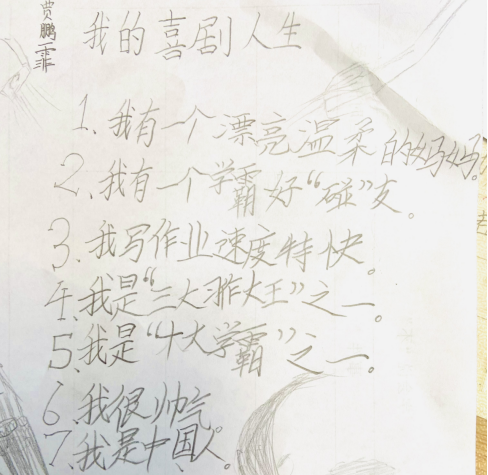 贾鹏霏
我的喜剧人生
1、我有一个漂亮温柔的妈妈。
2、我有一个学霸好“碰”友。
3、我写作业速度特快。
4、我是“三大习作大王”之一。
5、我是“十大学霸”之一。
6、我很帅气。
7、我是中国人。